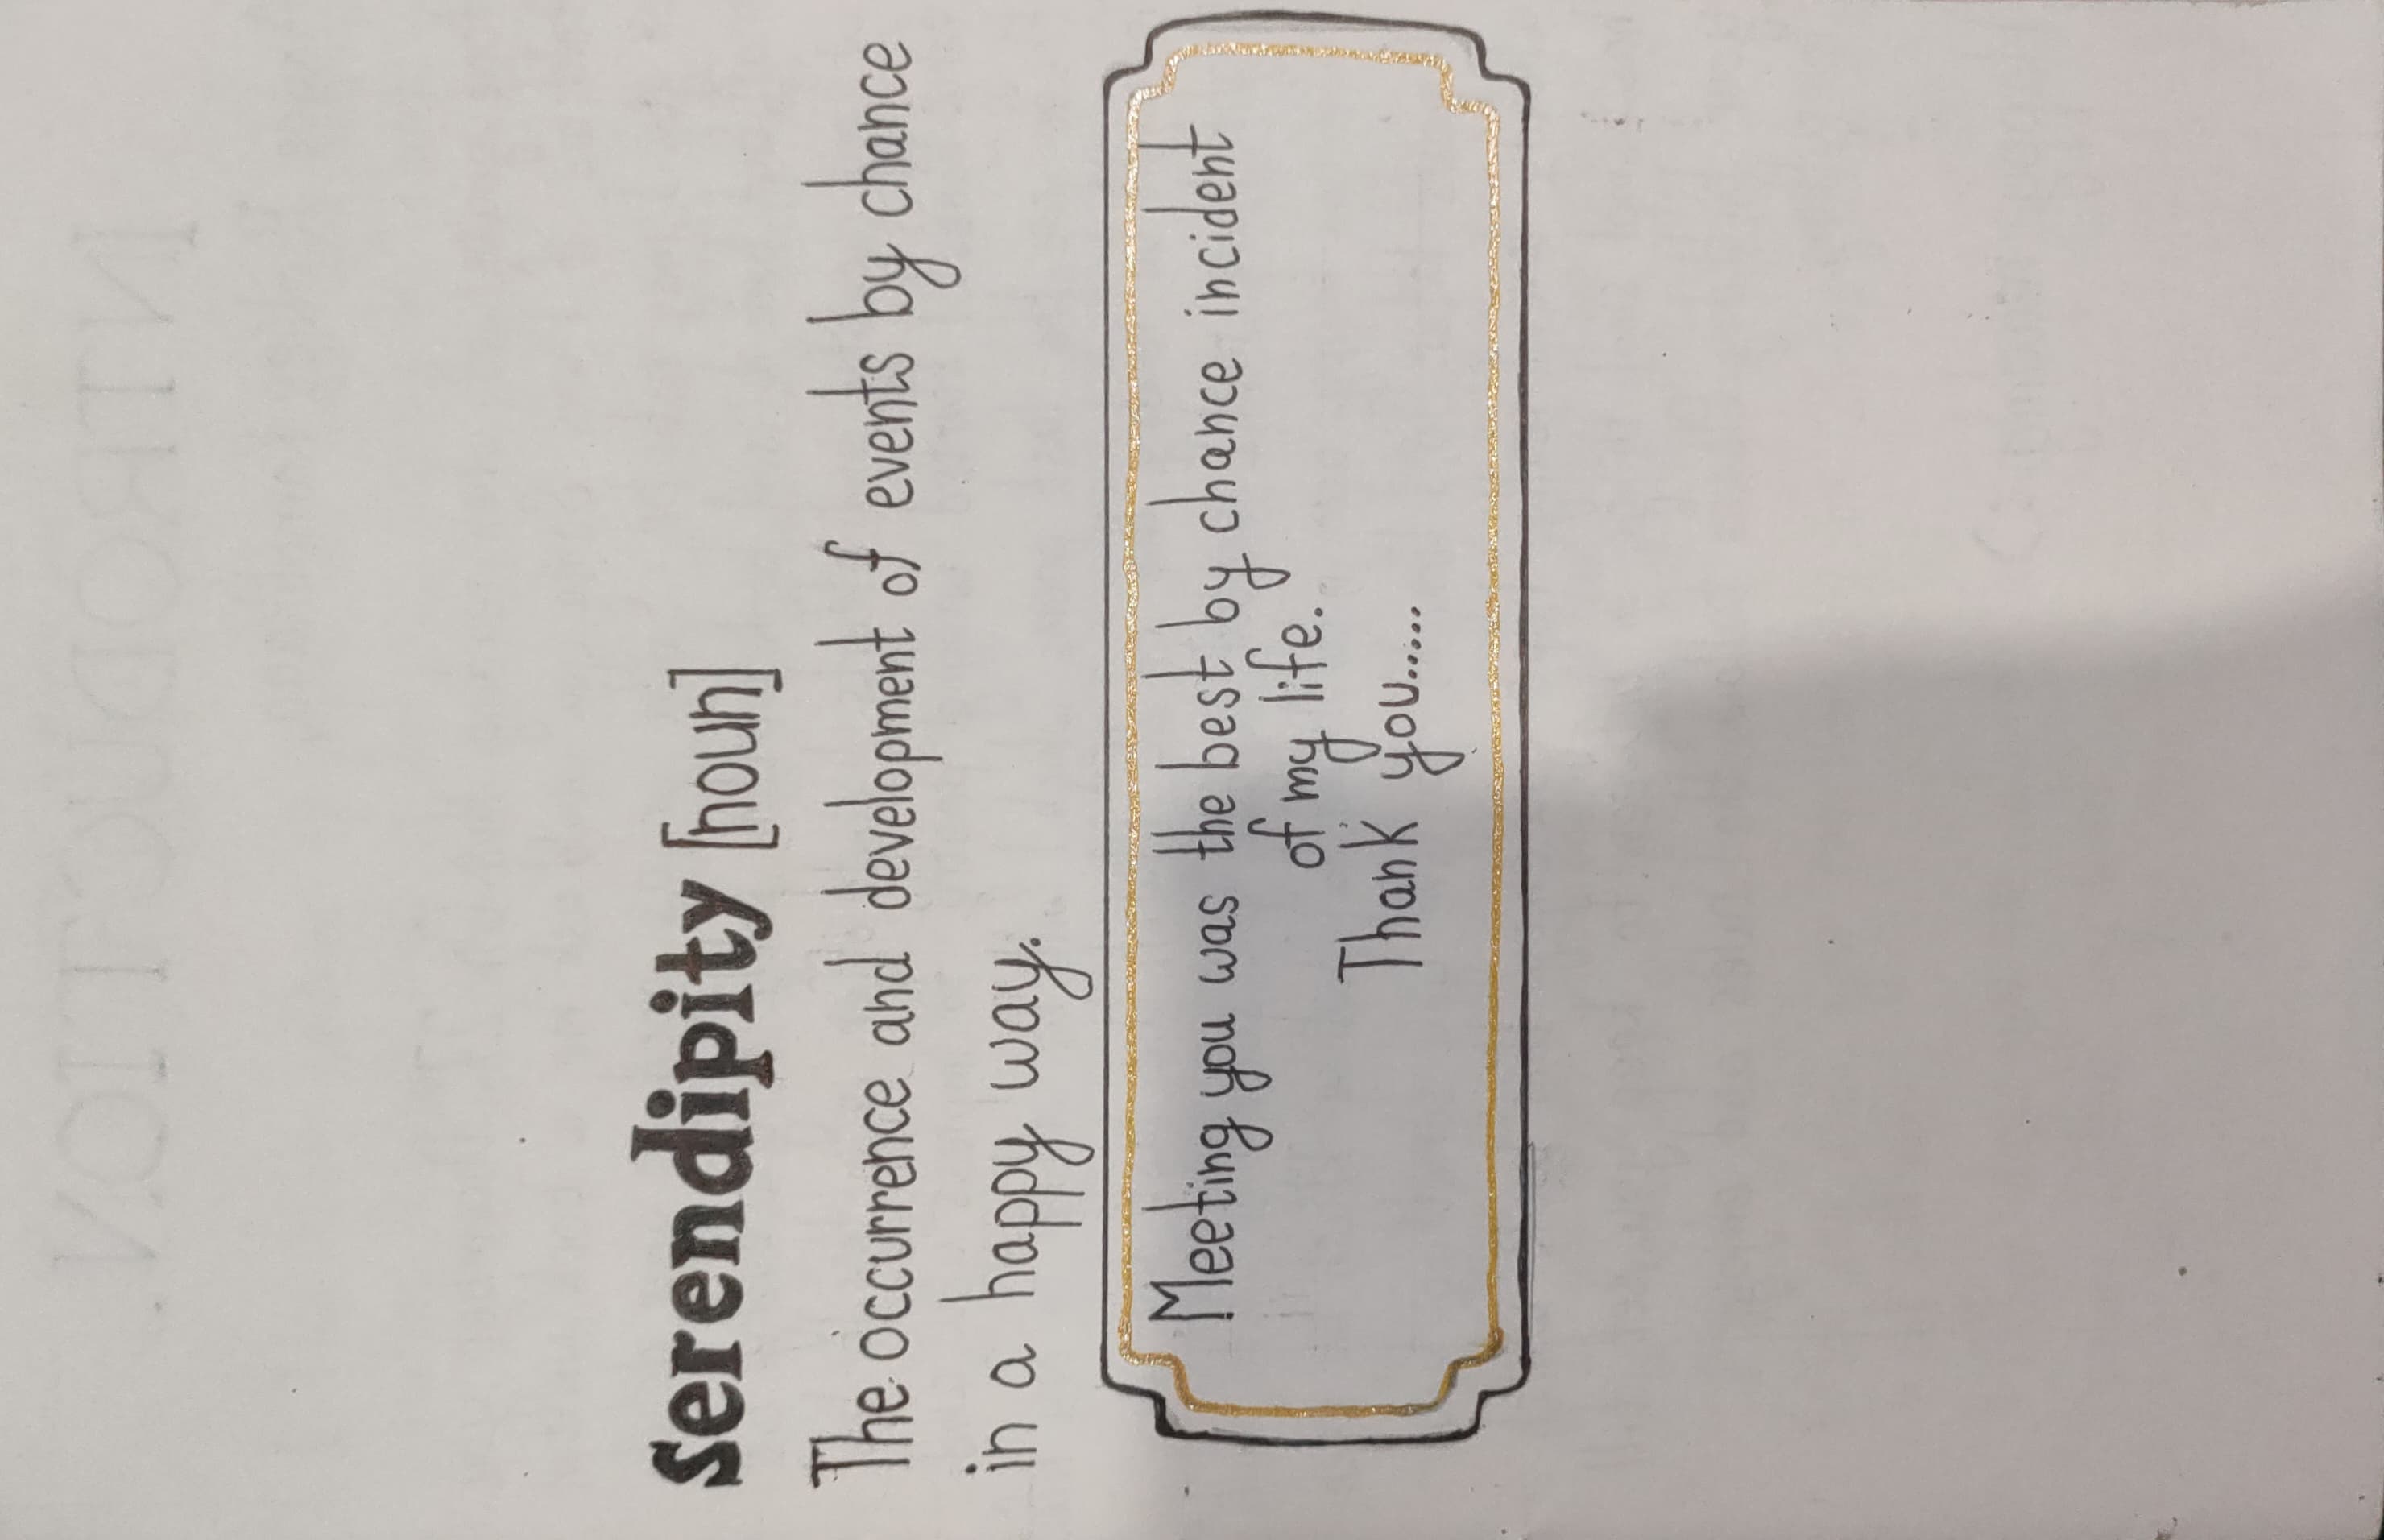 Serendipity [noun]
The occurrence and development of events by chance
in a happy way.
Meeting you was the best by chance incident
of my life.
Thank you.....